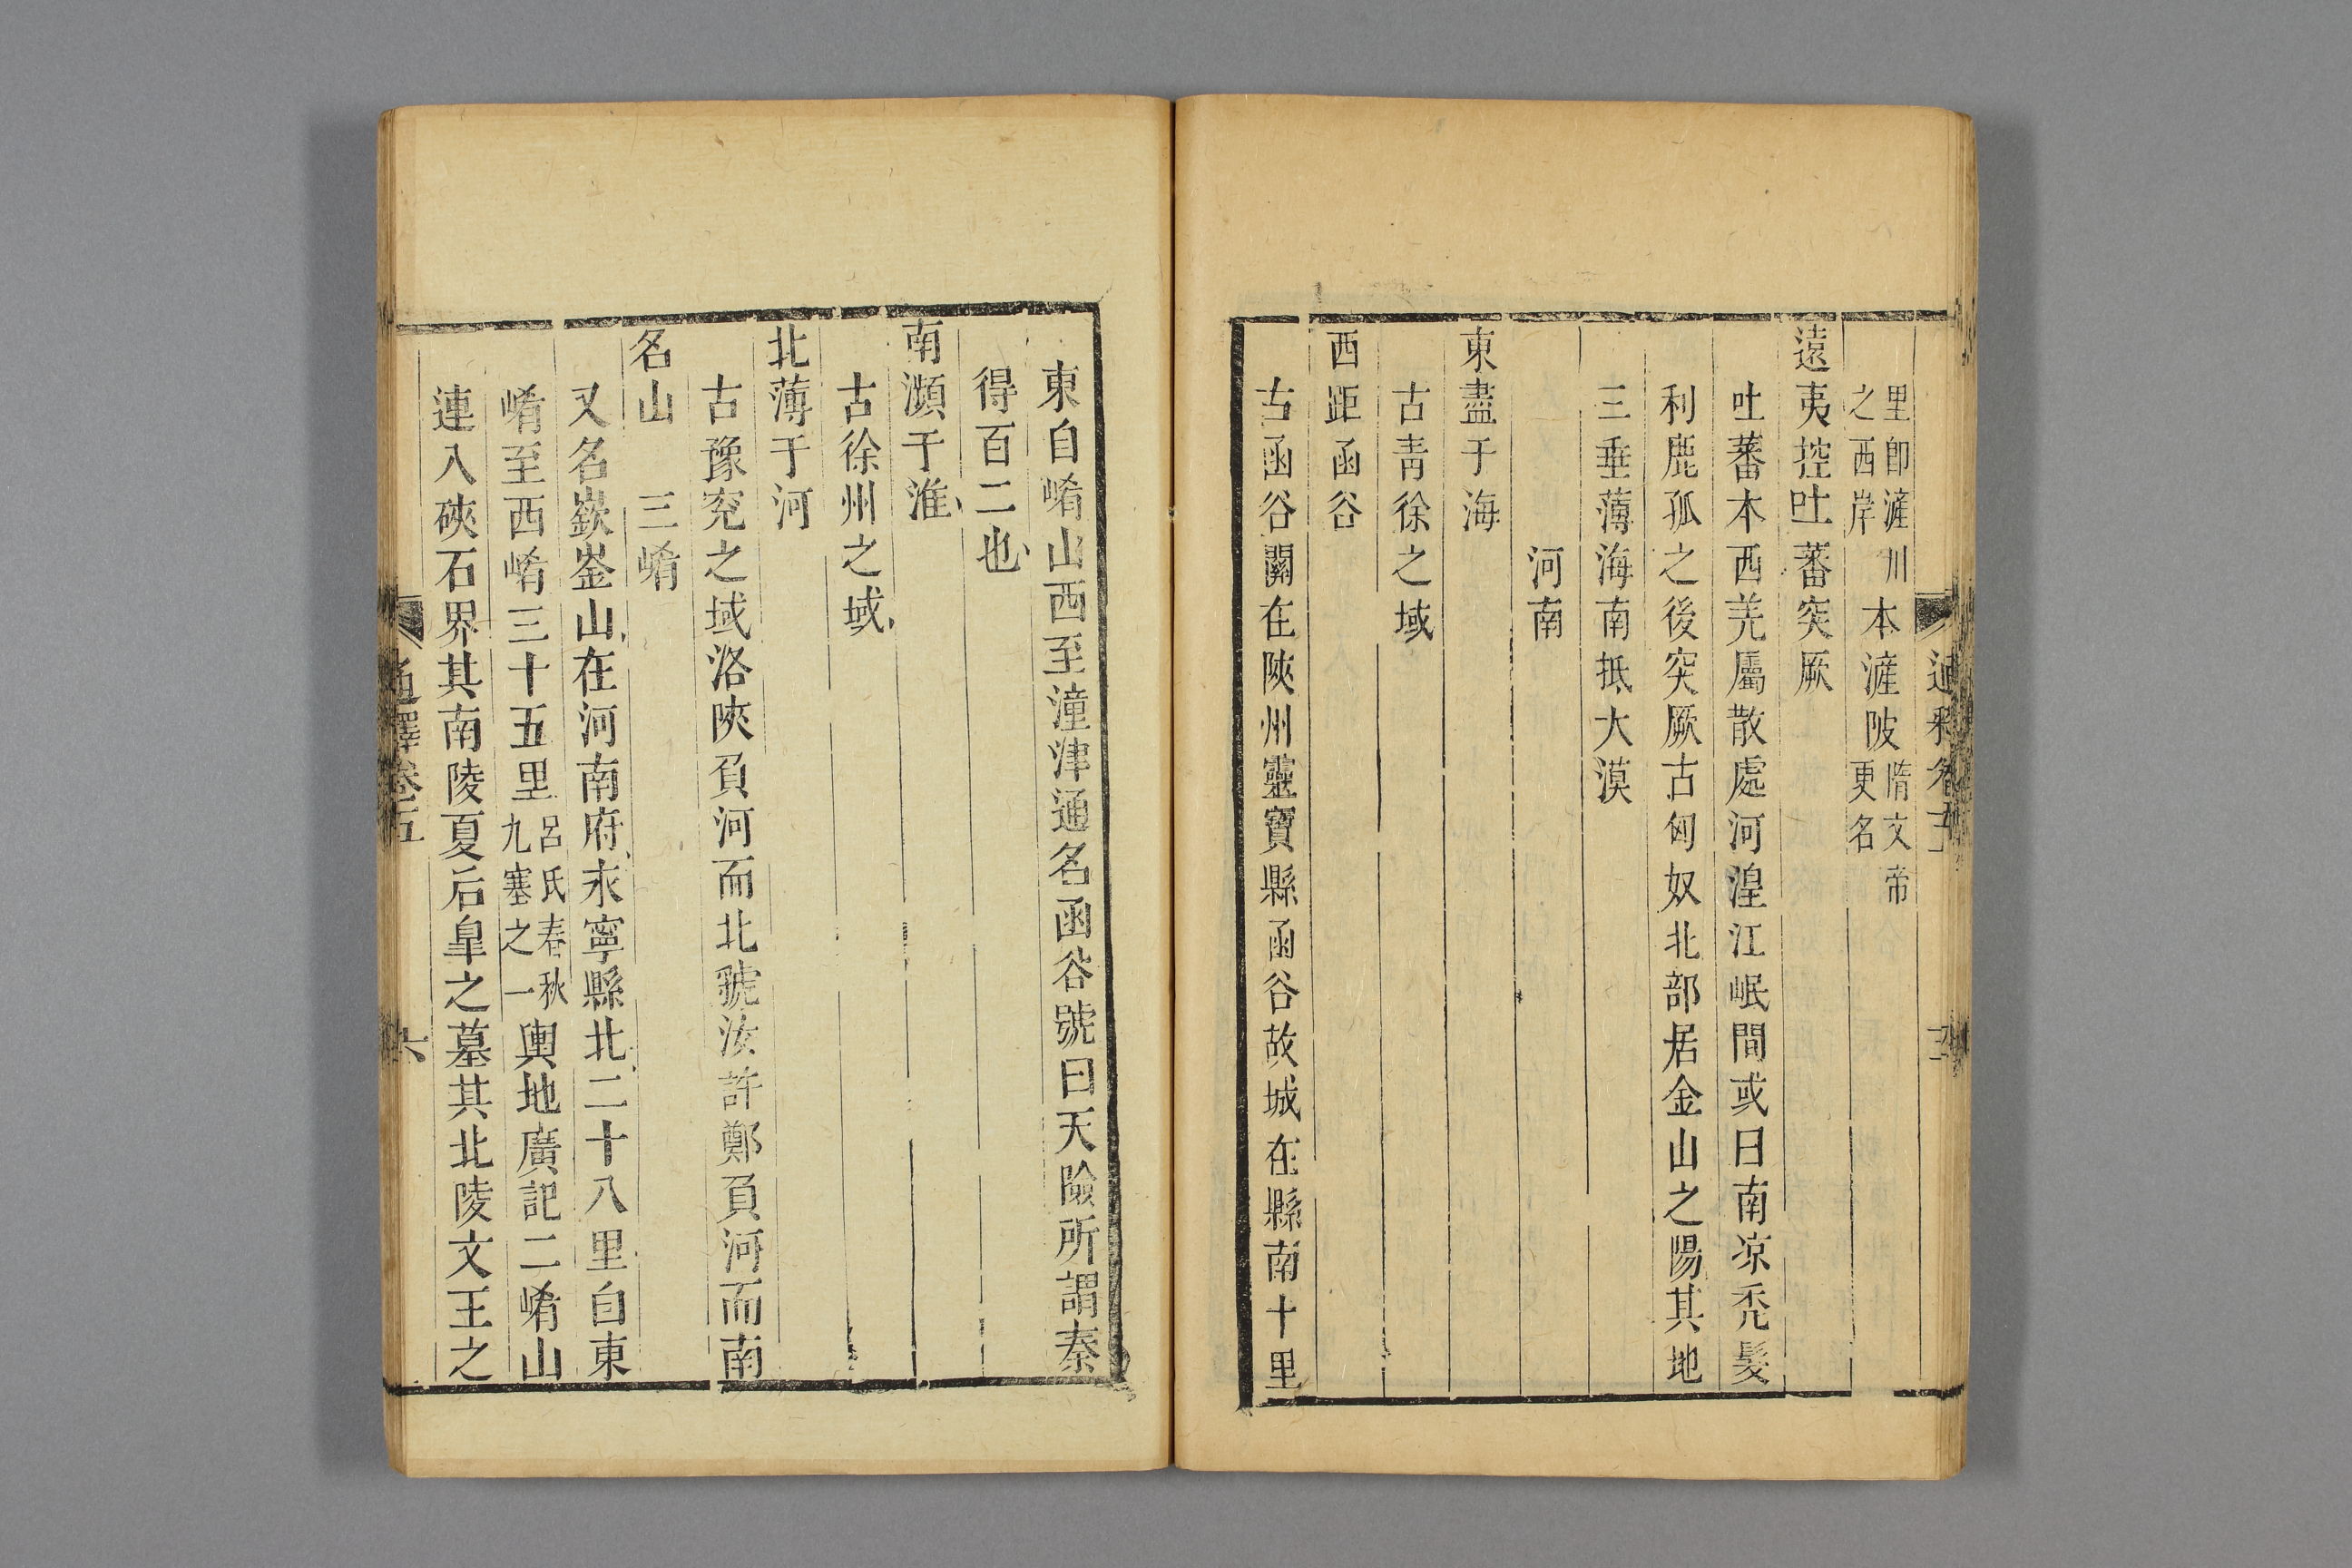 里卽滻川之西岸本滻陂隋文帝更名
遠夷控吐蕃突厥
吐蕃本西羌屬散處河湟江岷間或曰南凉禿髮
利鹿孤之後突厥古匈奴北部居金山之陽其地
三垂薄海南抵大漠
河南
東盡于海
古靑徐之域
西距函谷
古函谷關在陝州靈寶縣函谷故城在縣南十里
東自崤山西至潼津通名函谷號曰天險所謂秦
得百二也
南瀕于淮
古徐州之域
北薄于河
古豫兖之域洛陝負河而北虢汝許鄭負河而南
名山 三崤
又名嶔崟山在河南府永寧縣北二十八里自東
崤至西崤三十五里呂氏春秋九塞之一輿地廣記二崤山
連入硤石界其南陵夏后臯之墓其北陵文王之
通釋卷五 六